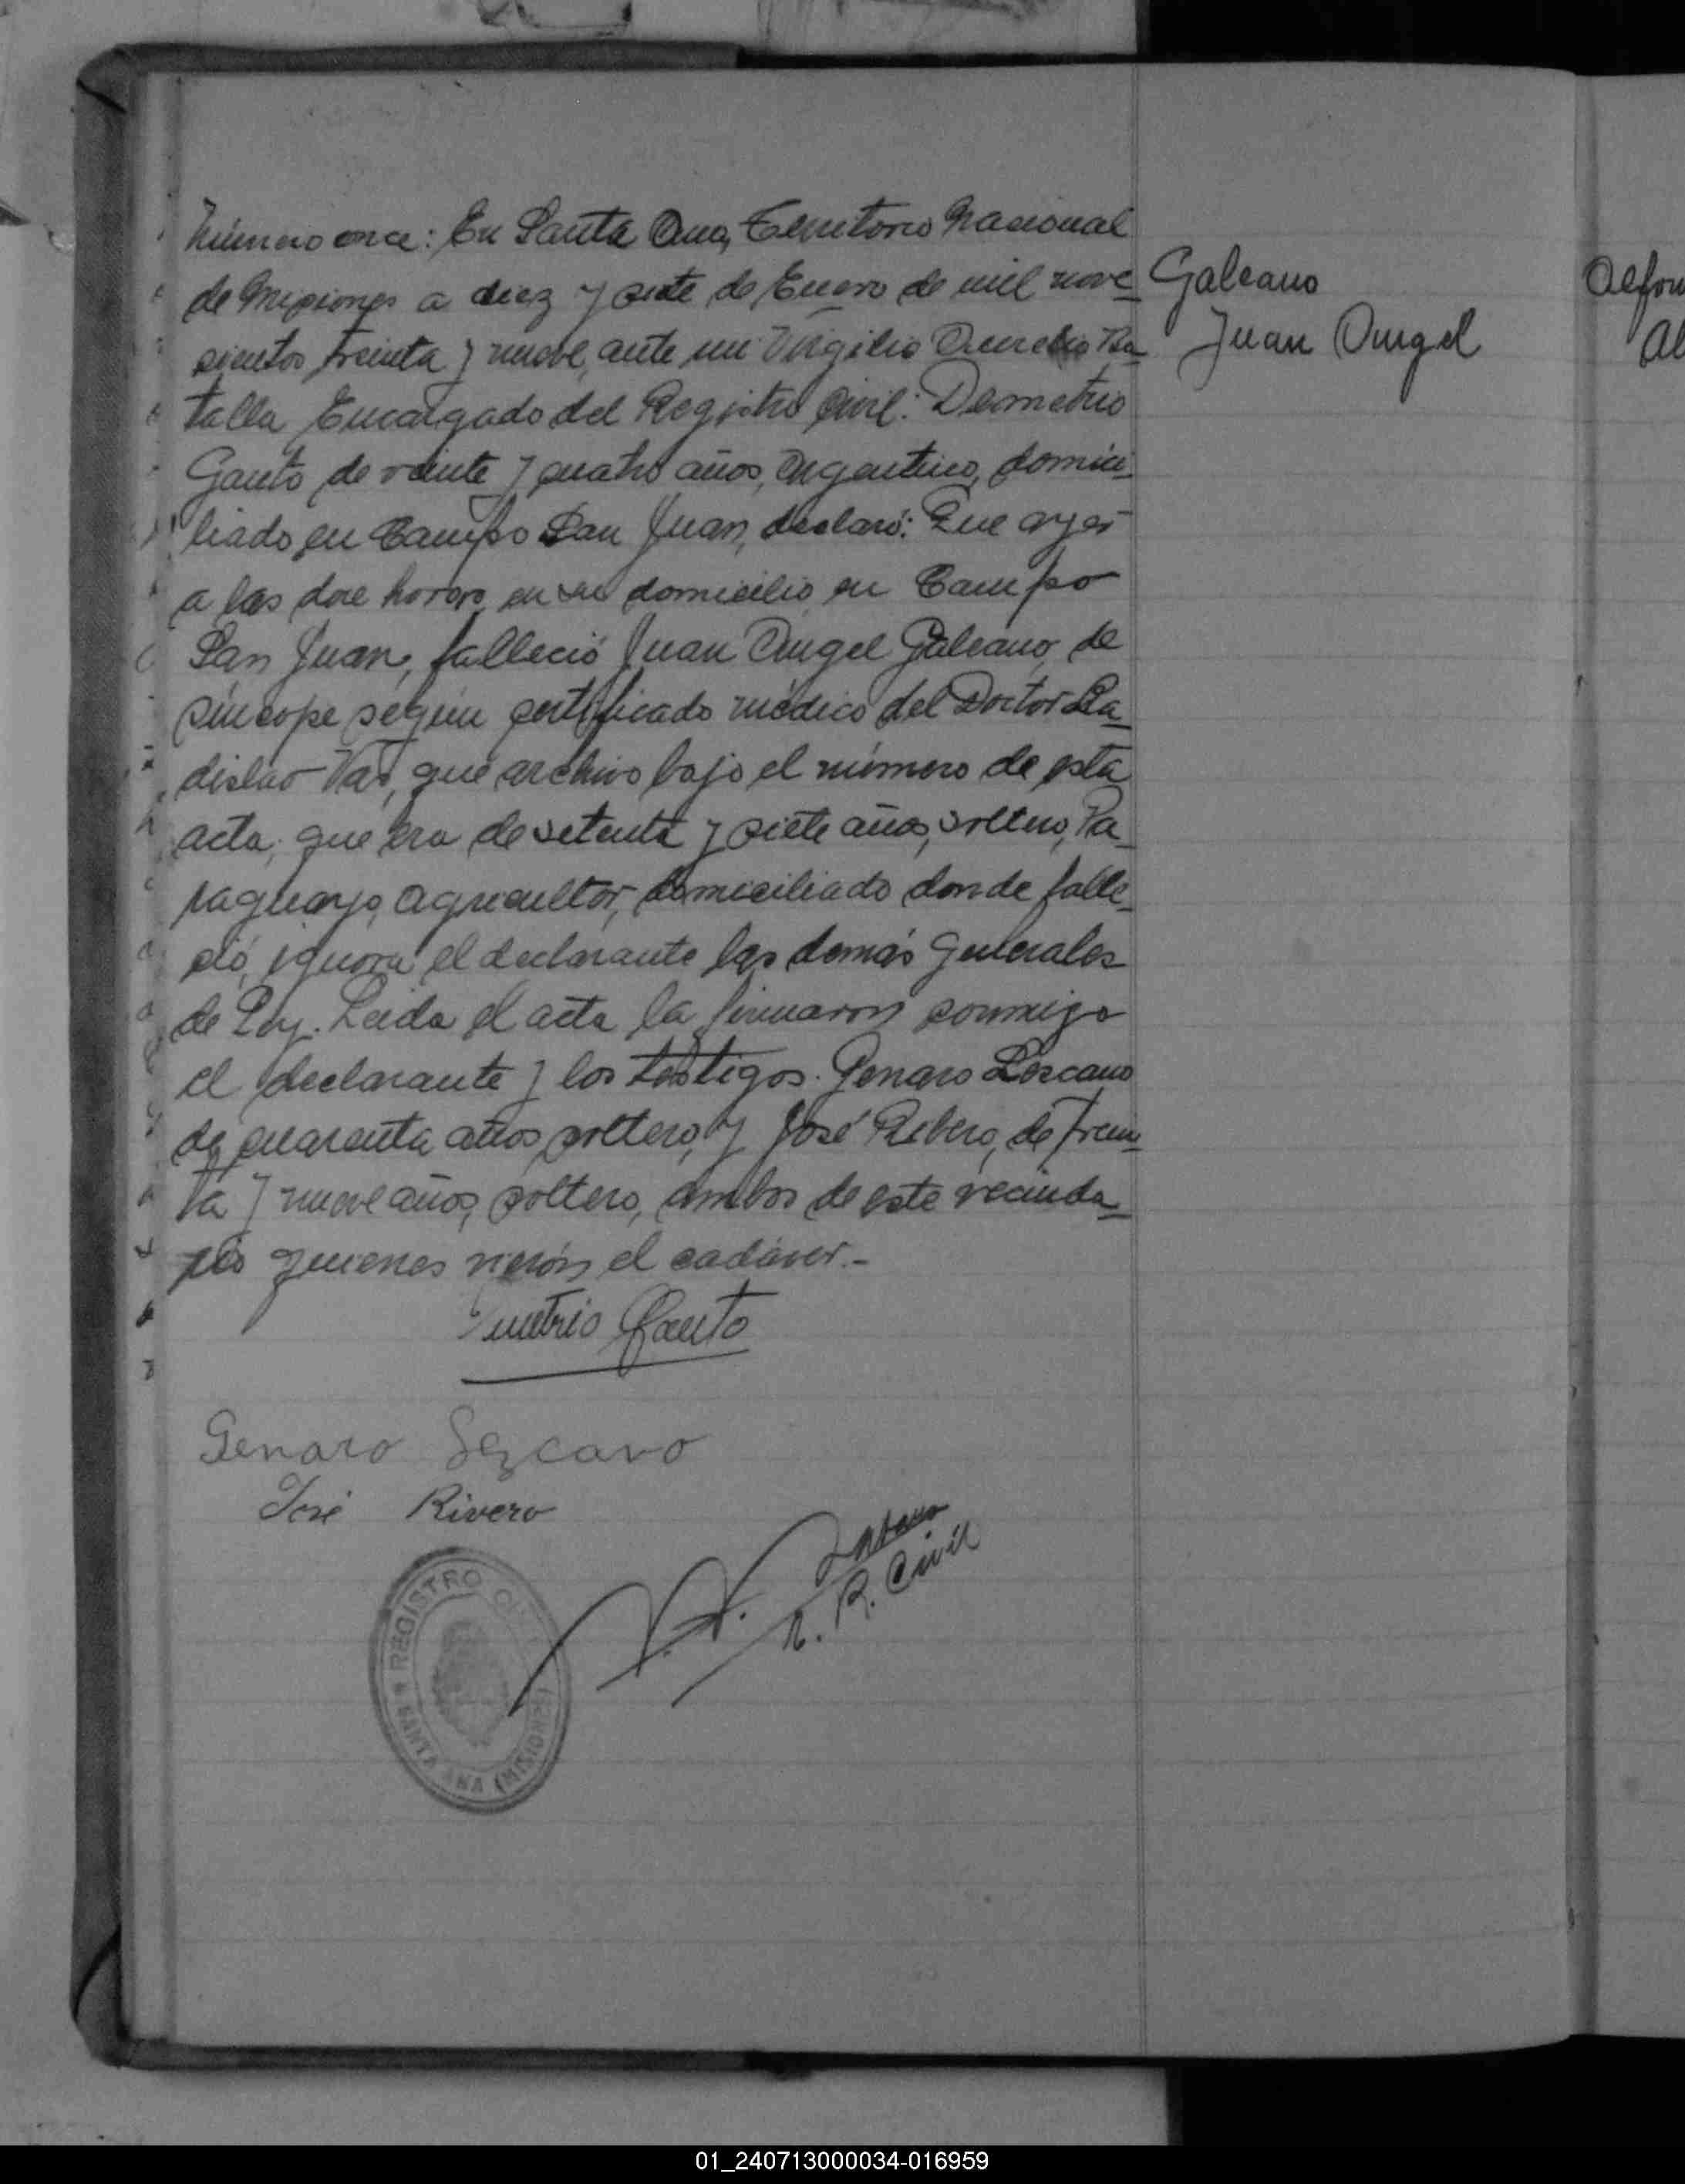 Número once: En Santa Ana, Territorio Nacional
de Misiones a diez y siete de Enero de mil nove-
cientos treinta y nueve, ante mi Virgilio Aurelio Ba-
talla Encargado del Registro Civil: Demetrio
Gauto de veinte y cuatro años, Argentino, domici-
liado en Campo San Juan, declaró: Que ayer
a las doce horas en su domicilio en Campo
San Juan, falleció Juan Angel Galeano, de
síncope según certificado médico del Doctor La-
dislao Vas, que archivo bajo el número de esta
acta; que era de setenta y siete años, soltero, Pa-
raguayo, agricultor, domiciliado donde falle-
ció, ignora el declarante las demás generales
de Ley. Leida el acta la firmaron conmigo
el declarante y los testigos. Genaro Lezcano
de cuarenta años, soltero, y José Ribero, de trein-
ta y nueve años, soltero, ambos de este vecinda-
rio quienes vierón el cadáver.-
Gauto
Genaro Lezcano
José Rivero
R. Civil
REGISTRO
SANTA ANA (MISIONES)
Galeano
Juan Angel
01_240713000034-016959